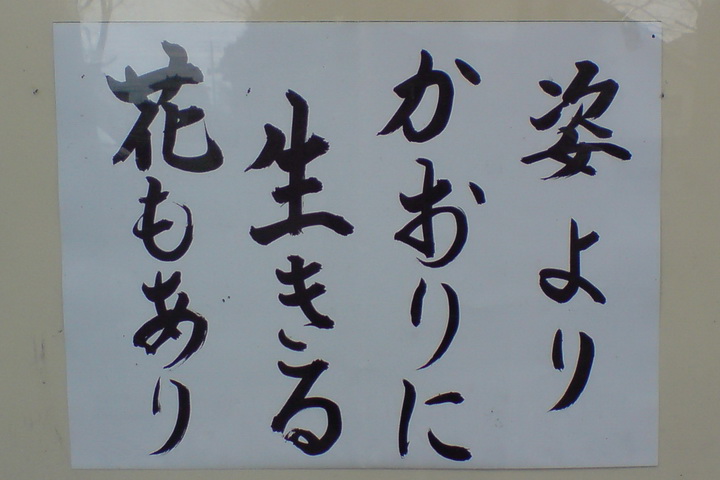 姿より
かおりに
生きる
花もあり